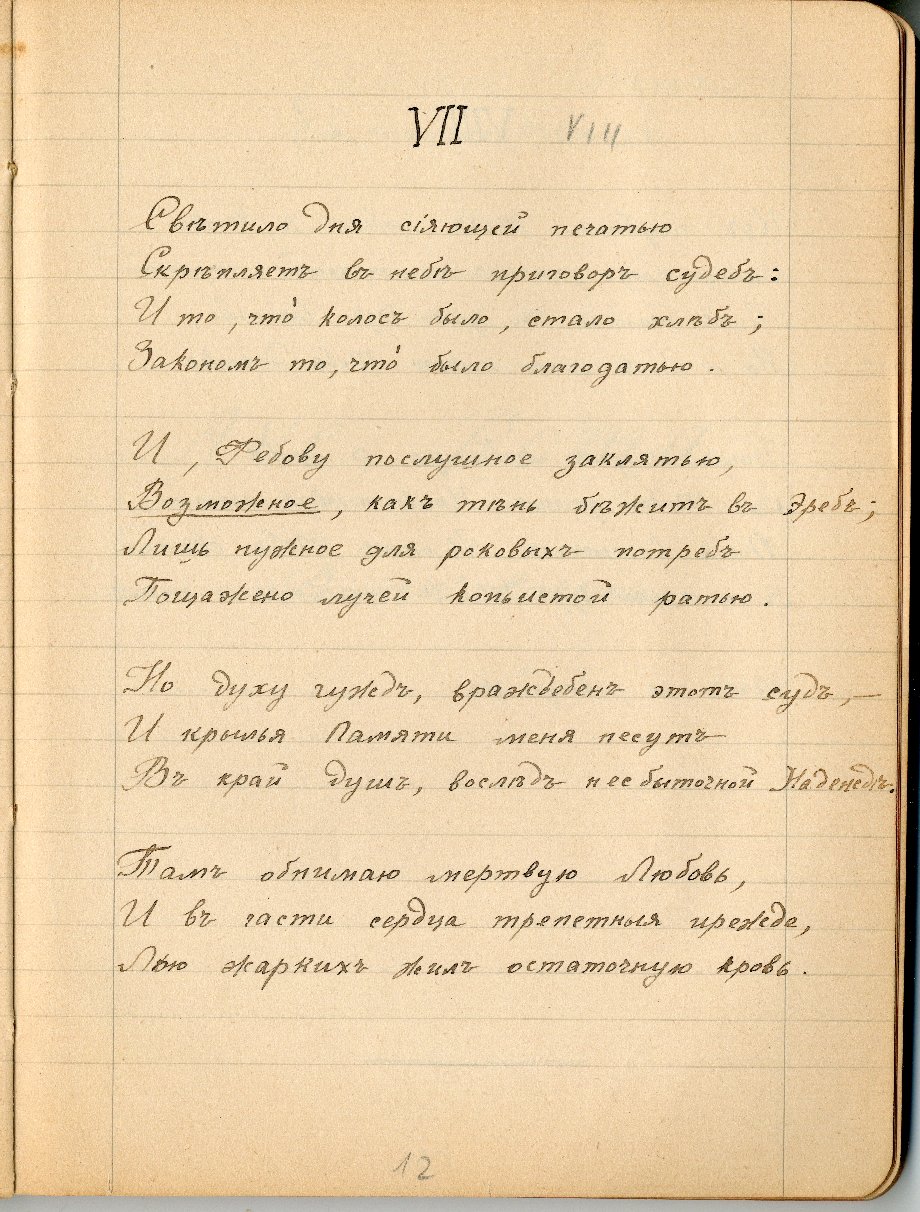 VII VIII
Свѣтило дня сіяющей печатью
Скрѣпляетъ въ небѣ приговоръ судебъ:
И то, что́ колосъ было, стало хлѣбъ;
Закономъ то, что́ было благодатью.
И, Фебову послушное заклятью,
Возможное, какъ тѣнь бѣжитъ въ Эребъ;
Лишь нужное для роковыхъ потребъ
Пощажено лучей копьистой ратью.
Но духу чуждъ, враждебенъ этотъ судъ,—
И крылья Памяти меня несутъ
Въ край душъ, вослѣдъ несбыточной Надеждѣ.
Тамъ обнимаю мертвую Любовь,
И въ части сердца трепетныя прежде,
Лью жаркихъ жилъ остаточную кровь.
12